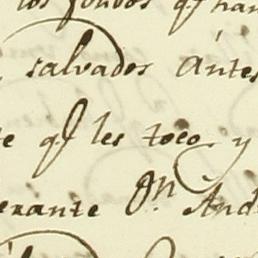 los fondos q.e han
salvados Antes
te q.e les toco y
erante D.n And